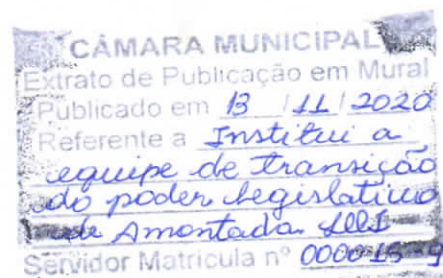 CÂMARA MUNICIPAL
Extrato de Publicação em Mural
Publicado em 13 / 11 / 2020
Referente a Institui a
equipe de transição
do poder legislativo
de Amontada
Servidor Matricula nº 000015-9